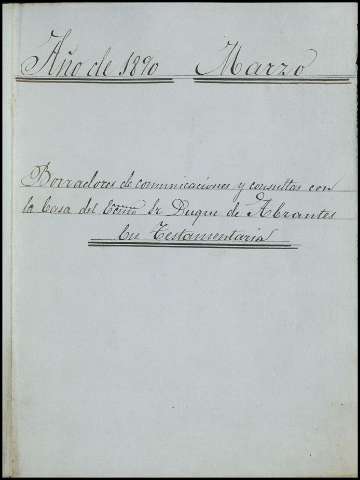 Año de 1890 Marzo
Borradores de comunicaciones y consultas con
la Casa del Excmo Sr Duque de Abrantes
En Testamentaria